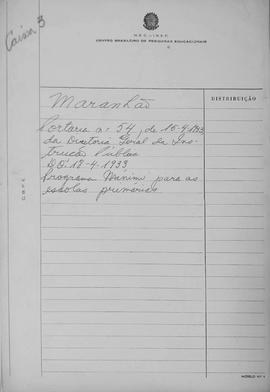 Caixa 3
M.E.C. - I.N.E.P.
CENTRO BRASILEIRO DE PESQUISAS EDUCACIONAIS
DISTRIBUIÇÃO
Maranhão
Portaria nº 54, de 15-4-1933
da Diretoria Geral da Ins-
trução Pública
D.O. 18-4-1933
Programa Mínimo para as
escolas primárias
C.B.P.E.
MODELO Nº 4